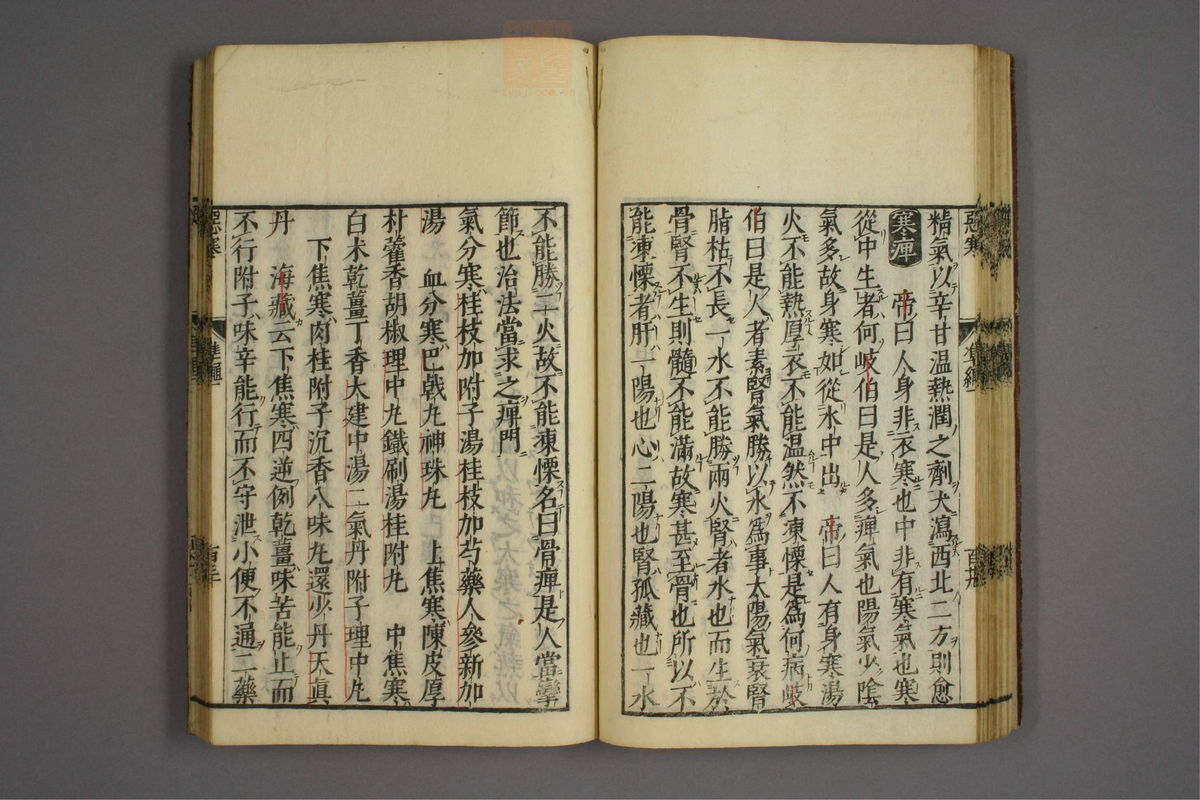 精氣以辛甘溫熱潤之劑大瀉西北二方則愈
寒痺
帝曰人身非衣寒也中非有寒氣也寒
從中生者何岐伯曰是人多痺氣也陽氣少陰
氣多故身寒如從水中出 帝曰人有身寒湯
火不能熱厚衣不能温然不凍慄是爲何病岐
伯曰是人者素腎氣勝以水爲事太陽氣衰腎
脂枯不長一水不能勝兩火腎者水也而生於
骨腎不生則髓不能滿故寒甚至骨也所以不
能凍慄者肝一陽也心二陽也腎孤藏也一水
不能勝二火故不能凍慄名曰骨痺是人當攣
節也治法當求之痺門
氣分寒桂枝加附子湯桂枝加芍藥人參新加
湯 血分寒巴戟丸神珠丸 上焦寒陳皮厚
朴藿香胡椒理中丸鐵刷湯桂附丸 中焦寒
白朮乾薑丁香大建中湯二氣丹附子理中丸
下焦寒肉桂附子沉香八味丸還少丹天真
丹 海藏云下焦寒四逆例乾薑味苦能止而
不行附子味辛能行而不守泄小便不通二藥
惡寒